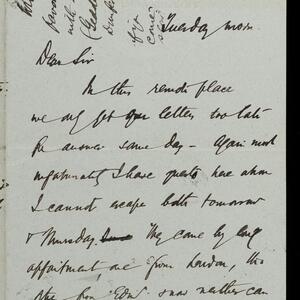 Tuesday morn.
Dear Sir
In this remote place
we only get our letters too late
for answer same day – Again most
unfortunately I have guests here whom
I cannot escape both tomorrow
& Thursday. They came by long
appointment one from London, the
other from Edinr & now neither can